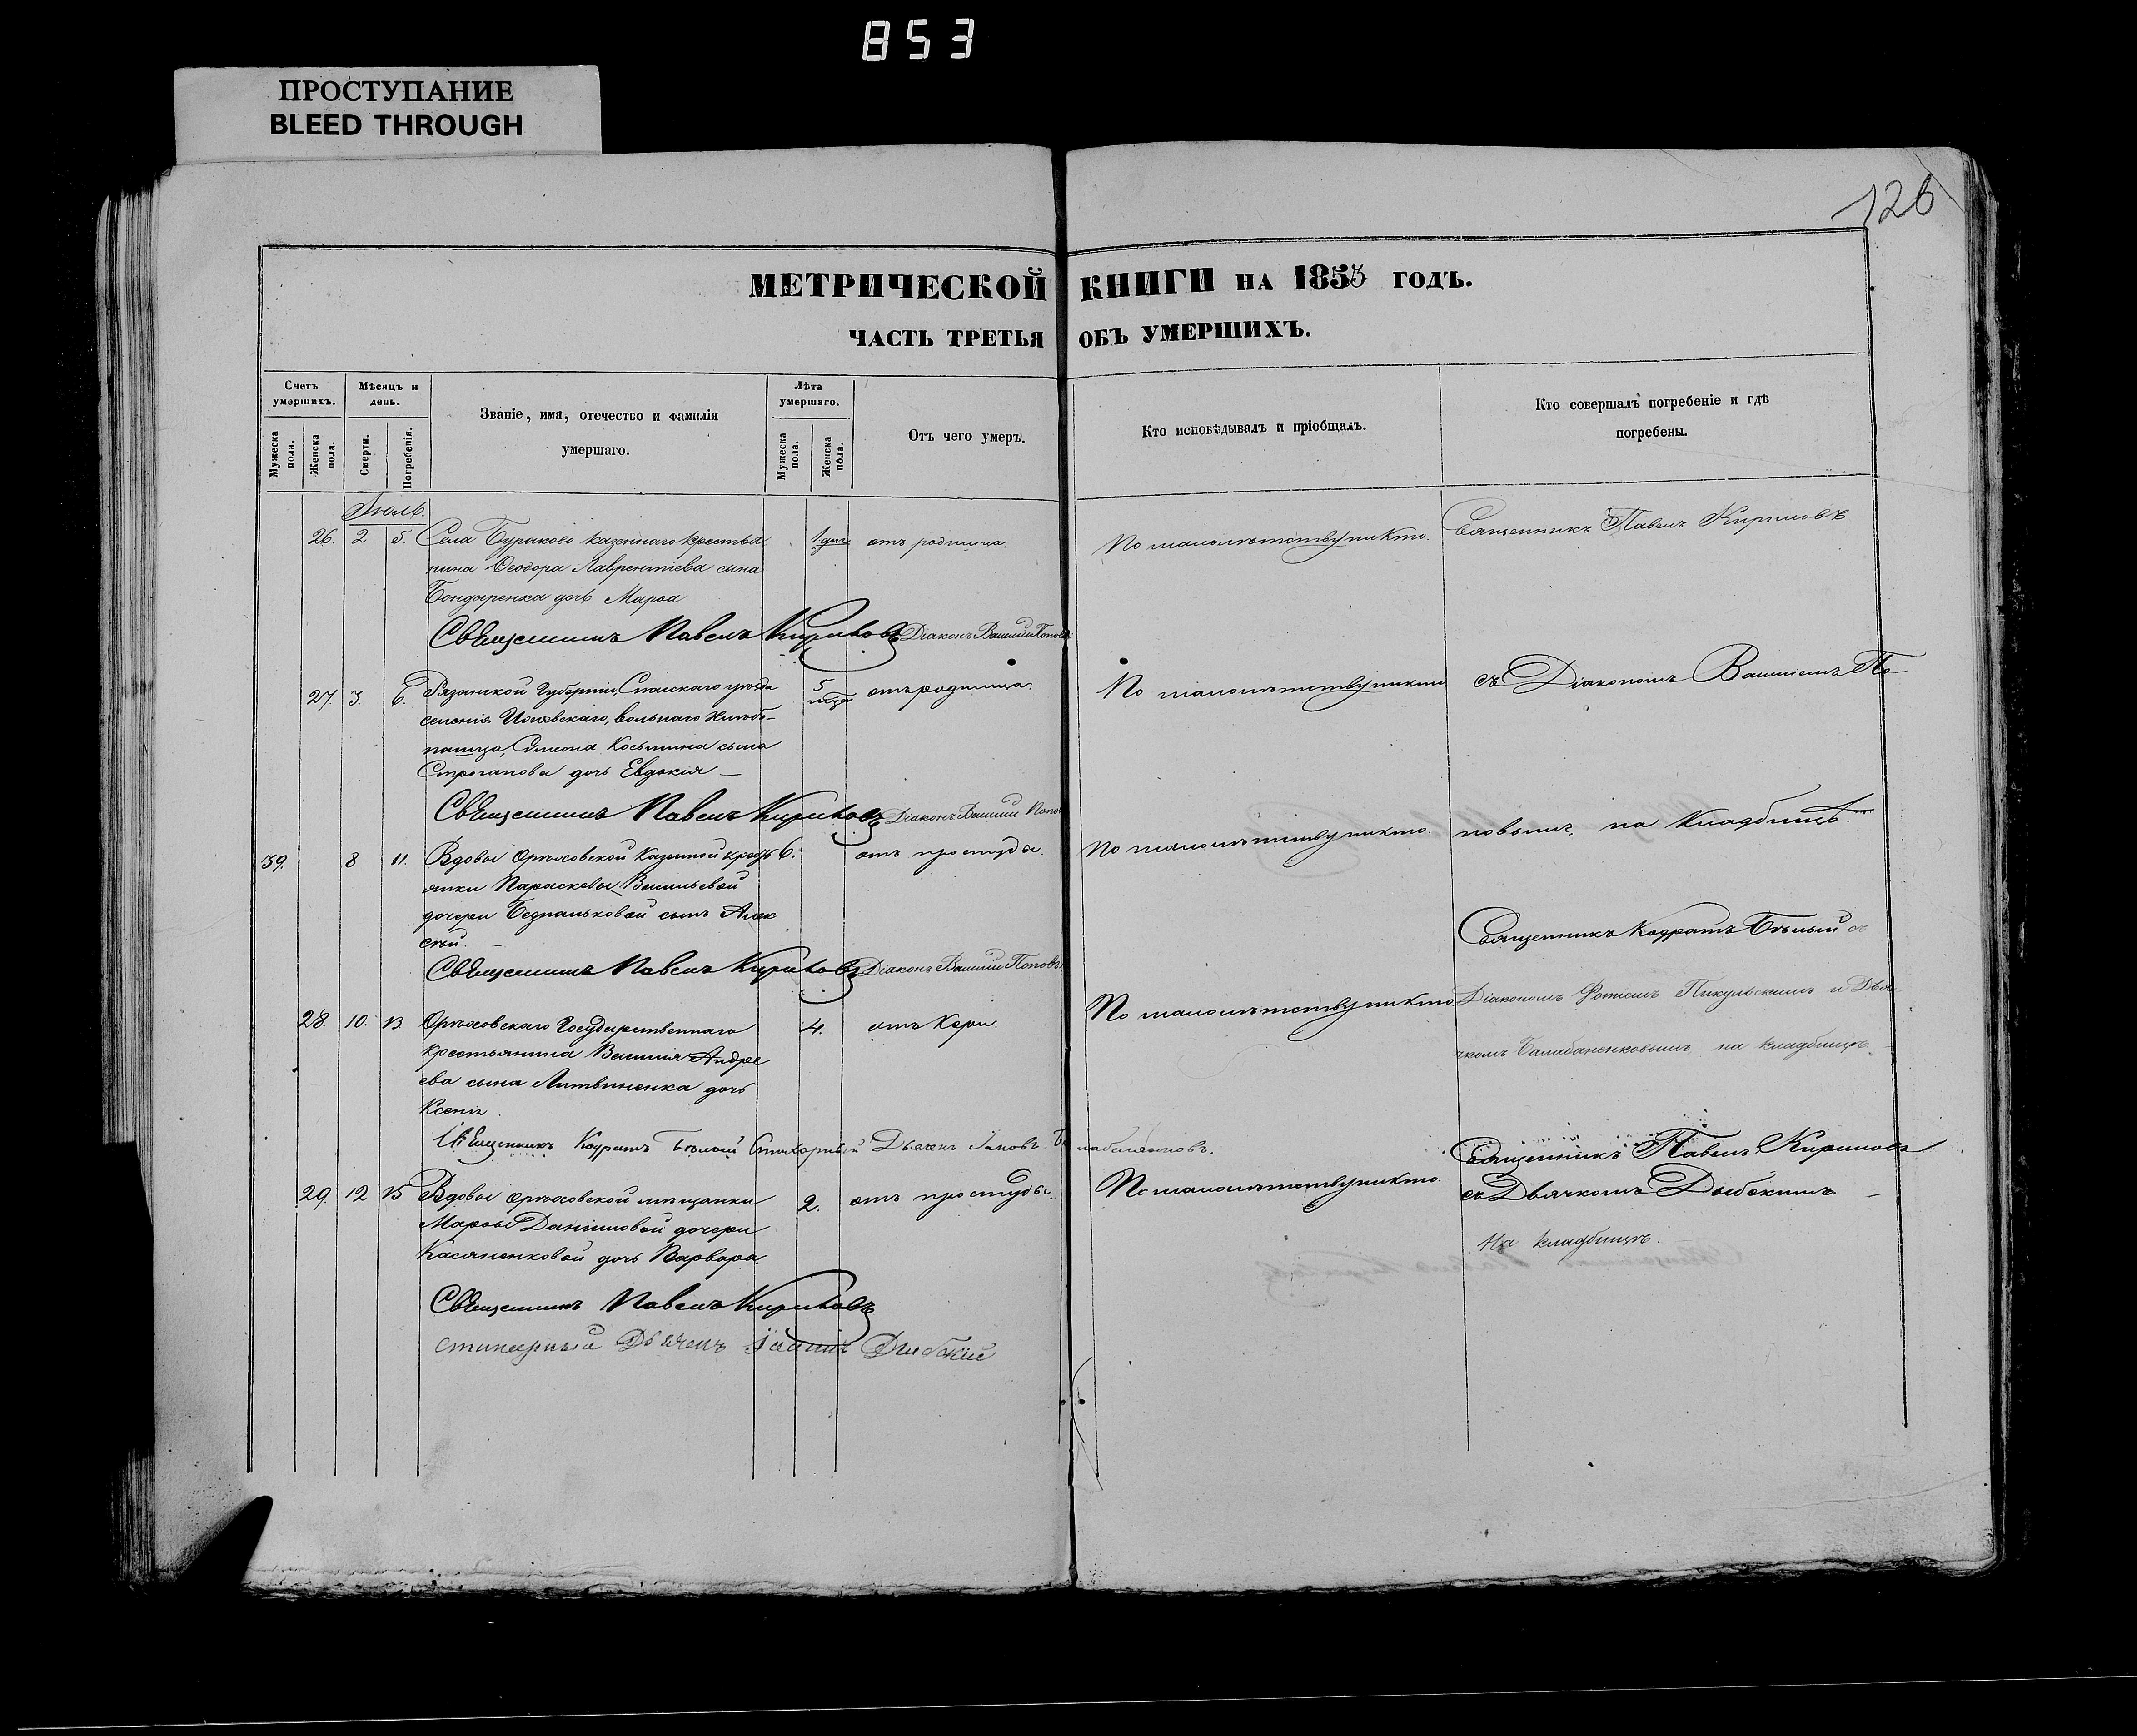 853
ПРОСТУПАНИЕ
BLEED THROUGH
126
МЕТРИЧЕСКОЙ КНИГИ НА 1853 ГОДЪ.
ЧАСТЬ ТРЕТЬЯ ОБЪ УМЕРШИХЪ.
Счетъ умершихъ.
Мужеска пола.
Женска пола.
Мѣсяцъ и день.
Смерти.
Погребенія.
Званіе, имя, отечество и фамилія
умершаго.
Лѣта умершаго.
Мужеска пола.
Женска пола.
Отъ чего умеръ.
Кто исповѣдывалъ и пріобщалъ.
Кто совершалъ погребеніе и гдѣ
погребены.
Іюль.
26. 2 5. Села Бураково казеннаго крестья отъ родимца. По малолѣтству никто. Священникъ Павелъ Кириловъ
нина Ѳеодора Лаврентіева сына
Бондаренка дочь Марѳа
Священникъ Павелъ Кириловъ Діаконъ Василій Поповъ
27. 3. 6. Рязанской Губерніи, Спасскаго уѣзда 5 отъ родимца. По малолѣтству никто съ Діакономъ Василіемъ По-
селенія вольнаго хлѣбо-
пашца, Симеона Косьмина сына
Строганова дочь Евдокія —
Священникъ Павелъ Кириловъ Діаконъ Василій Попов
39. 8 11. Вдовы Орѣховской Казенной крест 6. отъ простуды. По малолѣтству никто. повымъ, на Кладбищѣ.
янки Параскевы Васильевой
дочери сынъ Алек
сѣй.
Священникъ Павелъ Кириловъ Діаконъ Василій Поповъ
Священникъ Кодратъ Бѣлый съ
28. 10. 13. Орѣховскаго Государственнаго 4. отъ Кори. По малолѣтству никто Діакономъ Фотіемъ Пикульскимъ и Дья
крестьянина Василія Андре
ева сына Литвиненка дочь чкомъ Балабаненковымъ на кладбищѣ.
Ксенія.
Священникъ Кодратъ Бѣлый Стихарный Дьячекъ Іаковъ Балабаненковъ.
Священникъ Павелъ Кириловъ
29. 12 15 Вдовы орѣховской мѣщанки 2. отъ простуды. По малолѣтству никто. съ Дьячкомъ
Марѳы Даниловой дочери
Касяненковой дочь Варвара. На кладбищѣ.
Священникъ Павелъ Кириловъ
стихарный Дьячекъ